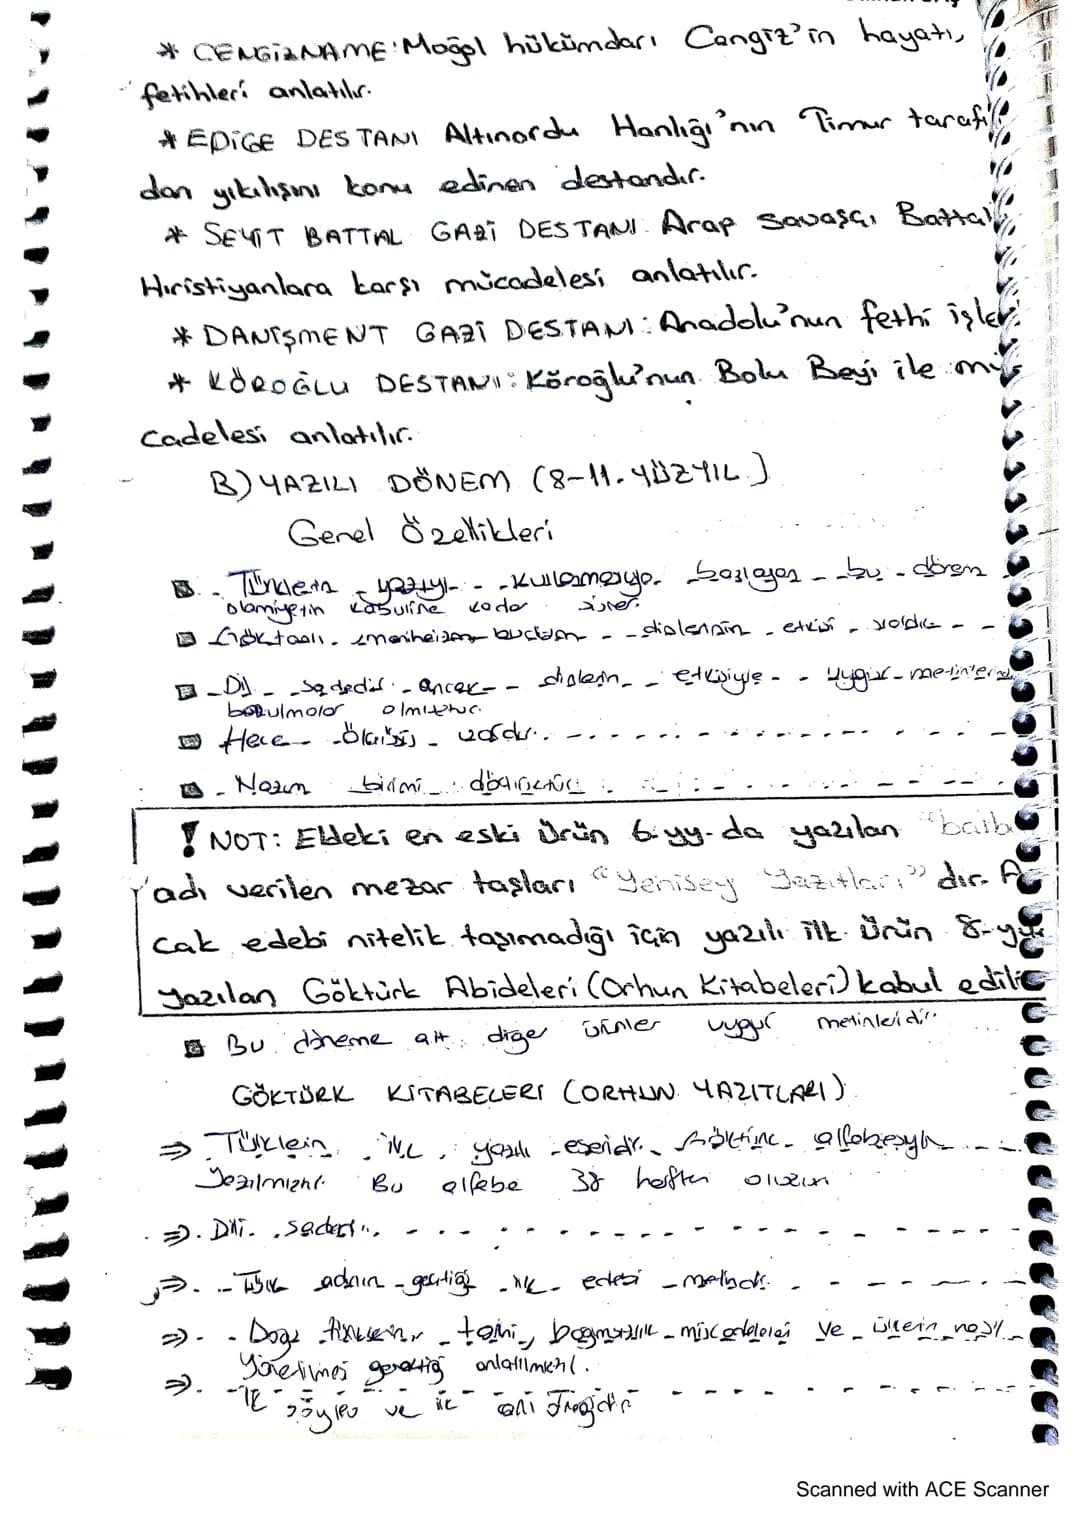 * CENGİZNAME: Moğol hükümdarı Cengiz'in hayatı,
fetihleri anlatılır.
* EDİGE DESTANI Altınordu Hanlığı'nın Timur tarafı
dan yıkılışını konu edinen destandır.
* SEYİT BATTAL GAZİ DESTANI: Arap savaşçı Battal
Hıristiyanlara karşı mücadelesi anlatılır.
* DANİŞMENT GAZİ DESTANI: Anadolu'nun fethi işle
* KÖROĞLU DESTANI: Köroğlu'nun Bolu Beyi ile mü
cadelesi anlatılır.
B) YAZILI DÖNEM (8-11. YÜZYIL)
Genel Özellikleri
Türklerin yazıyı kullanmasıyla başlayan bu dönem
kabulüne kadar sürer.
dinlerinin etkisi vardır
Dil sadedir. ancak dinlerin etkisiyle uygur metinlerinde
bozulmalar olmuştur.
Hece ölçüsü vardır.
Nazım birimi dörtlüktür
! NOT: Eldeki en eski ürün 6.yy.da yazılan "balb
adı verilen mezar taşları "Yenisey Yazıtları" dır. A
cak edebi nitelik taşımadığı için yazılı ilk ürün 8.yy
yazılan Göktürk Abideleri (Orhun Kitabeleri) kabul edili
Bu döneme ait diğer ürünler uygur metinleridir.
GÖKTÜRK KİTABELERİ (ORHUN YAZITLARI)
⇒ Türklerin ilk yazılı eseridir. Göktürk alfabesiyle
Yazılmıştır. Bu alfabe 38 harften oluşur
⇒ Dili sadedir.
⇒ Türk adının geçtiği ilk edebi metindir.
⇒ Doğu türklerinin tarihi, bağımsızlık mücadelesi ve ülkenin nasıl
Yönetilmesi gerektiği anlatılmıştır.
⇒ İlk söylev ve ilk anı örneğidir
Scanned with ACE Scanner